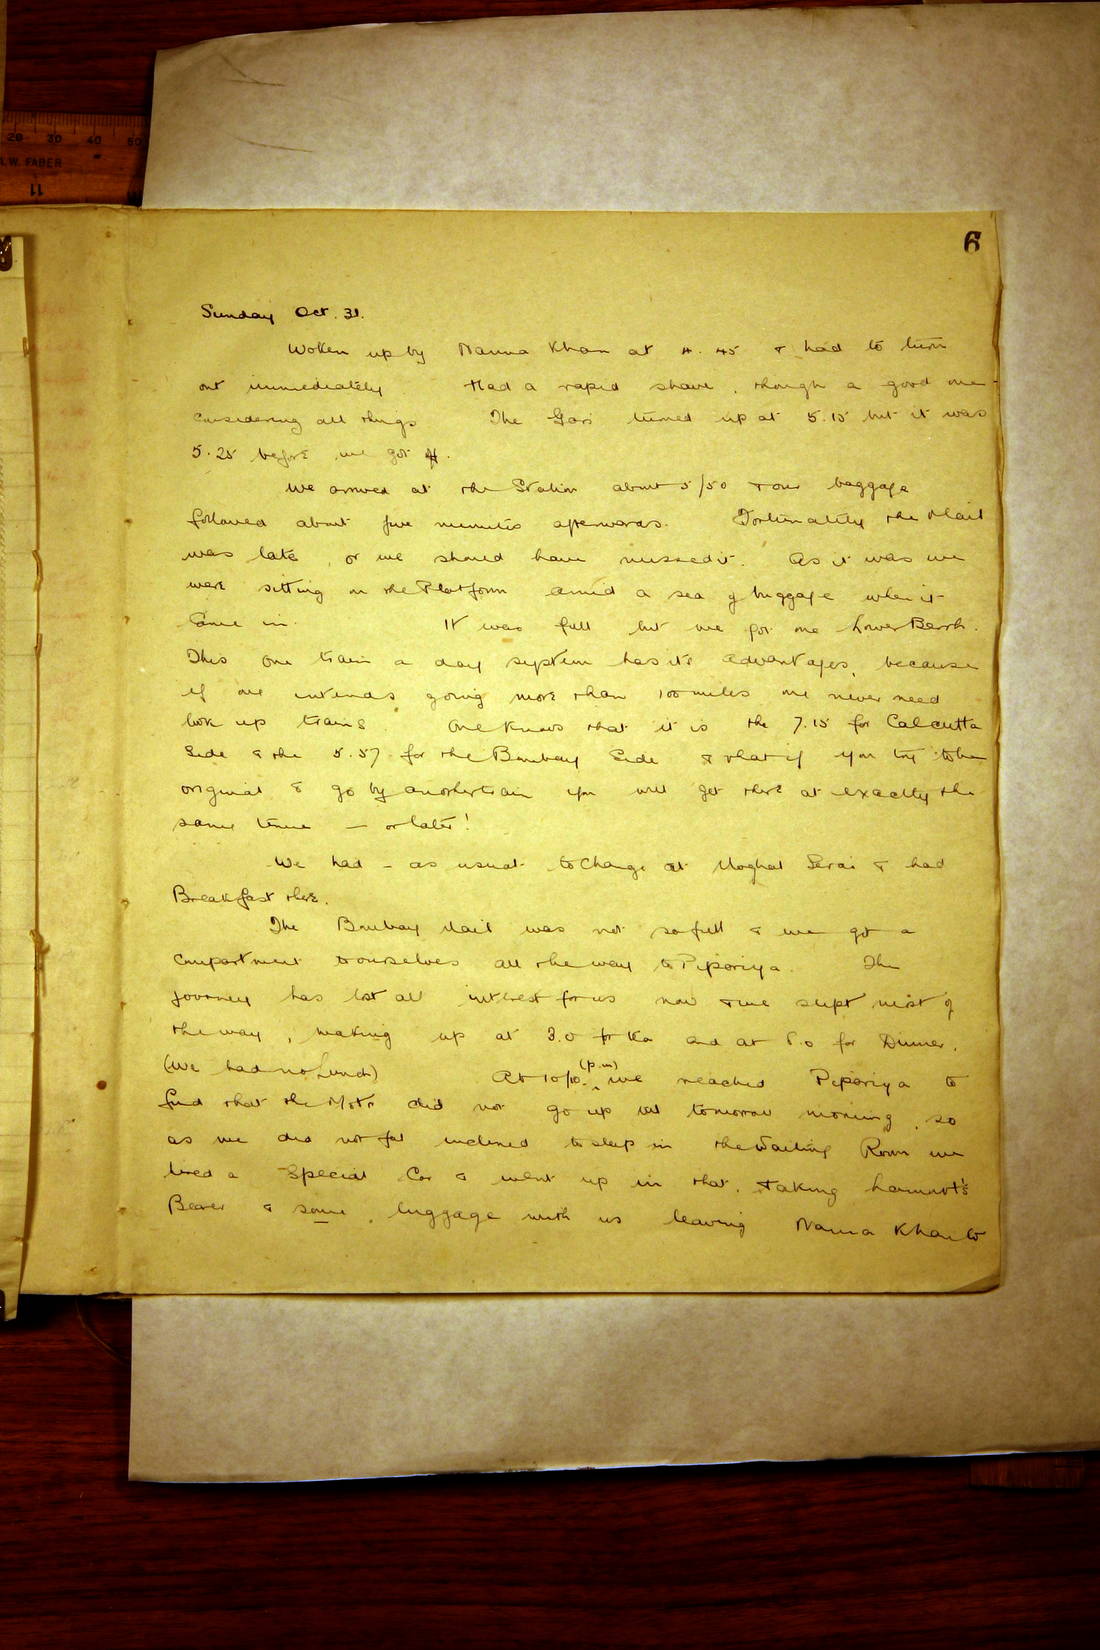 20 30 40 50
A.W. FABER
11
6
Sunday Oct. 31.
Woken up by Nanna Khan at 4.45 & had to turn
out immediately Had a rapid shave, though a good one
considering all things The Gari turned up at 5.15 but it was
5.25 before we got off.
We arrived at the Station about 5/50 & our baggage
followed about five minutes afterwards. Fortunately the Mail
was late, or we should have missed it. As it was we
were sitting on the Platform amid a sea of luggage when it
came in. It was full but we got one Lower Berth.
This one train a day system has its advantages, because
if one intends going more than 100 miles one never need
look up trains One knows that it is the 7.15 for Calcutta
Side & the 5.57 for the Bombay Side & that if you try to be
original & go by another train you will get there at exactly the
same time — or later!
We had – as usual to change at Moghal Serai & had
Breakfast there.
The Bombay Mail was not so full & we got a
compartment to ourselves all the way to Piporiya. The
journey has lost all interest for us now & we slept most of
the way, waking up at 3.0 for Tea and at 8.0 for Dinner.
(We had no Lunch) At 10/10 (p.m) we reached Piporiya to
find that the Motor did not go up till tomorrow morning, so
as we did not feel inclined to sleep in the Waiting Room we
hired a Special Car & went up in that, taking Lamont's
Bearer & some luggage with us leaving Nanna Khan to